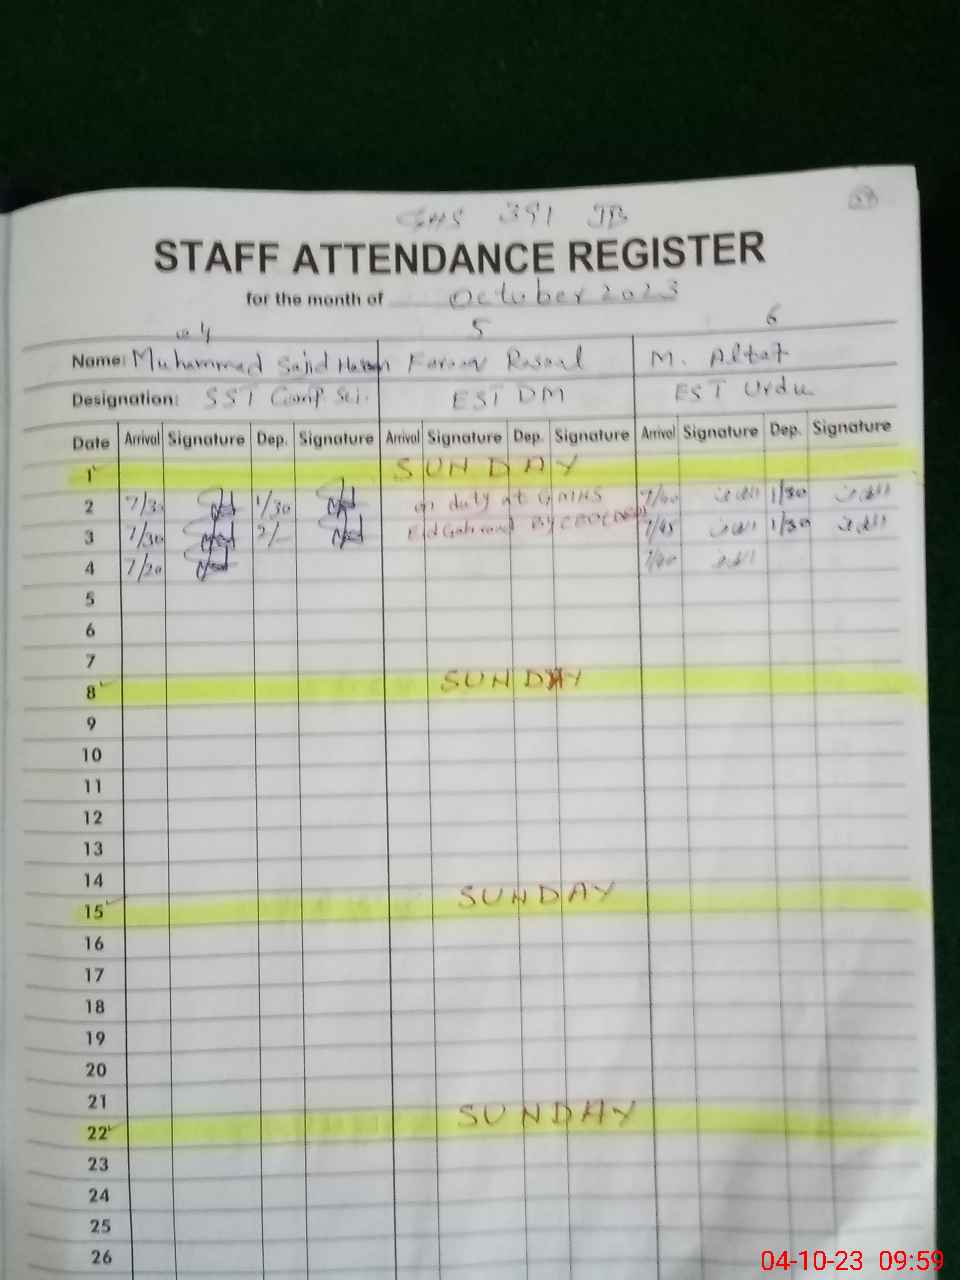 GHS 391 JB
STAFF ATTENDANCE REGISTER
for the month of October 2023
4 5 6
Name: Muhammad Sajid Hassan Rasool M. Altaf
Designation: SST Comp. Sci. EST DM EST Urdu
Date Arrival Signature Dep. Signature Arrival Signature Dep. Signature Arrival Signature Dep. Signature
1 SUNDAY
2 7/30 1/30 on duty at GMHS 7/40 1/30
3 7/30 2/- By 7/45 1/30
4 7/20 7/40
5
6
7
8 SUNDAY
9
10
11
12
13
14
15 SUNDAY
16
17
18
19
20
21
22 SUNDAY
23
24
25
26
04-10-23 09:59